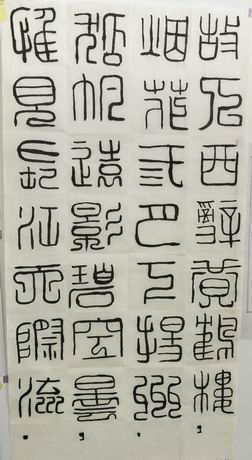 故人西辭黃鶴樓，
烟花弎月下揚州。
孤帆遠影碧空盡，
惟見長江天際流。